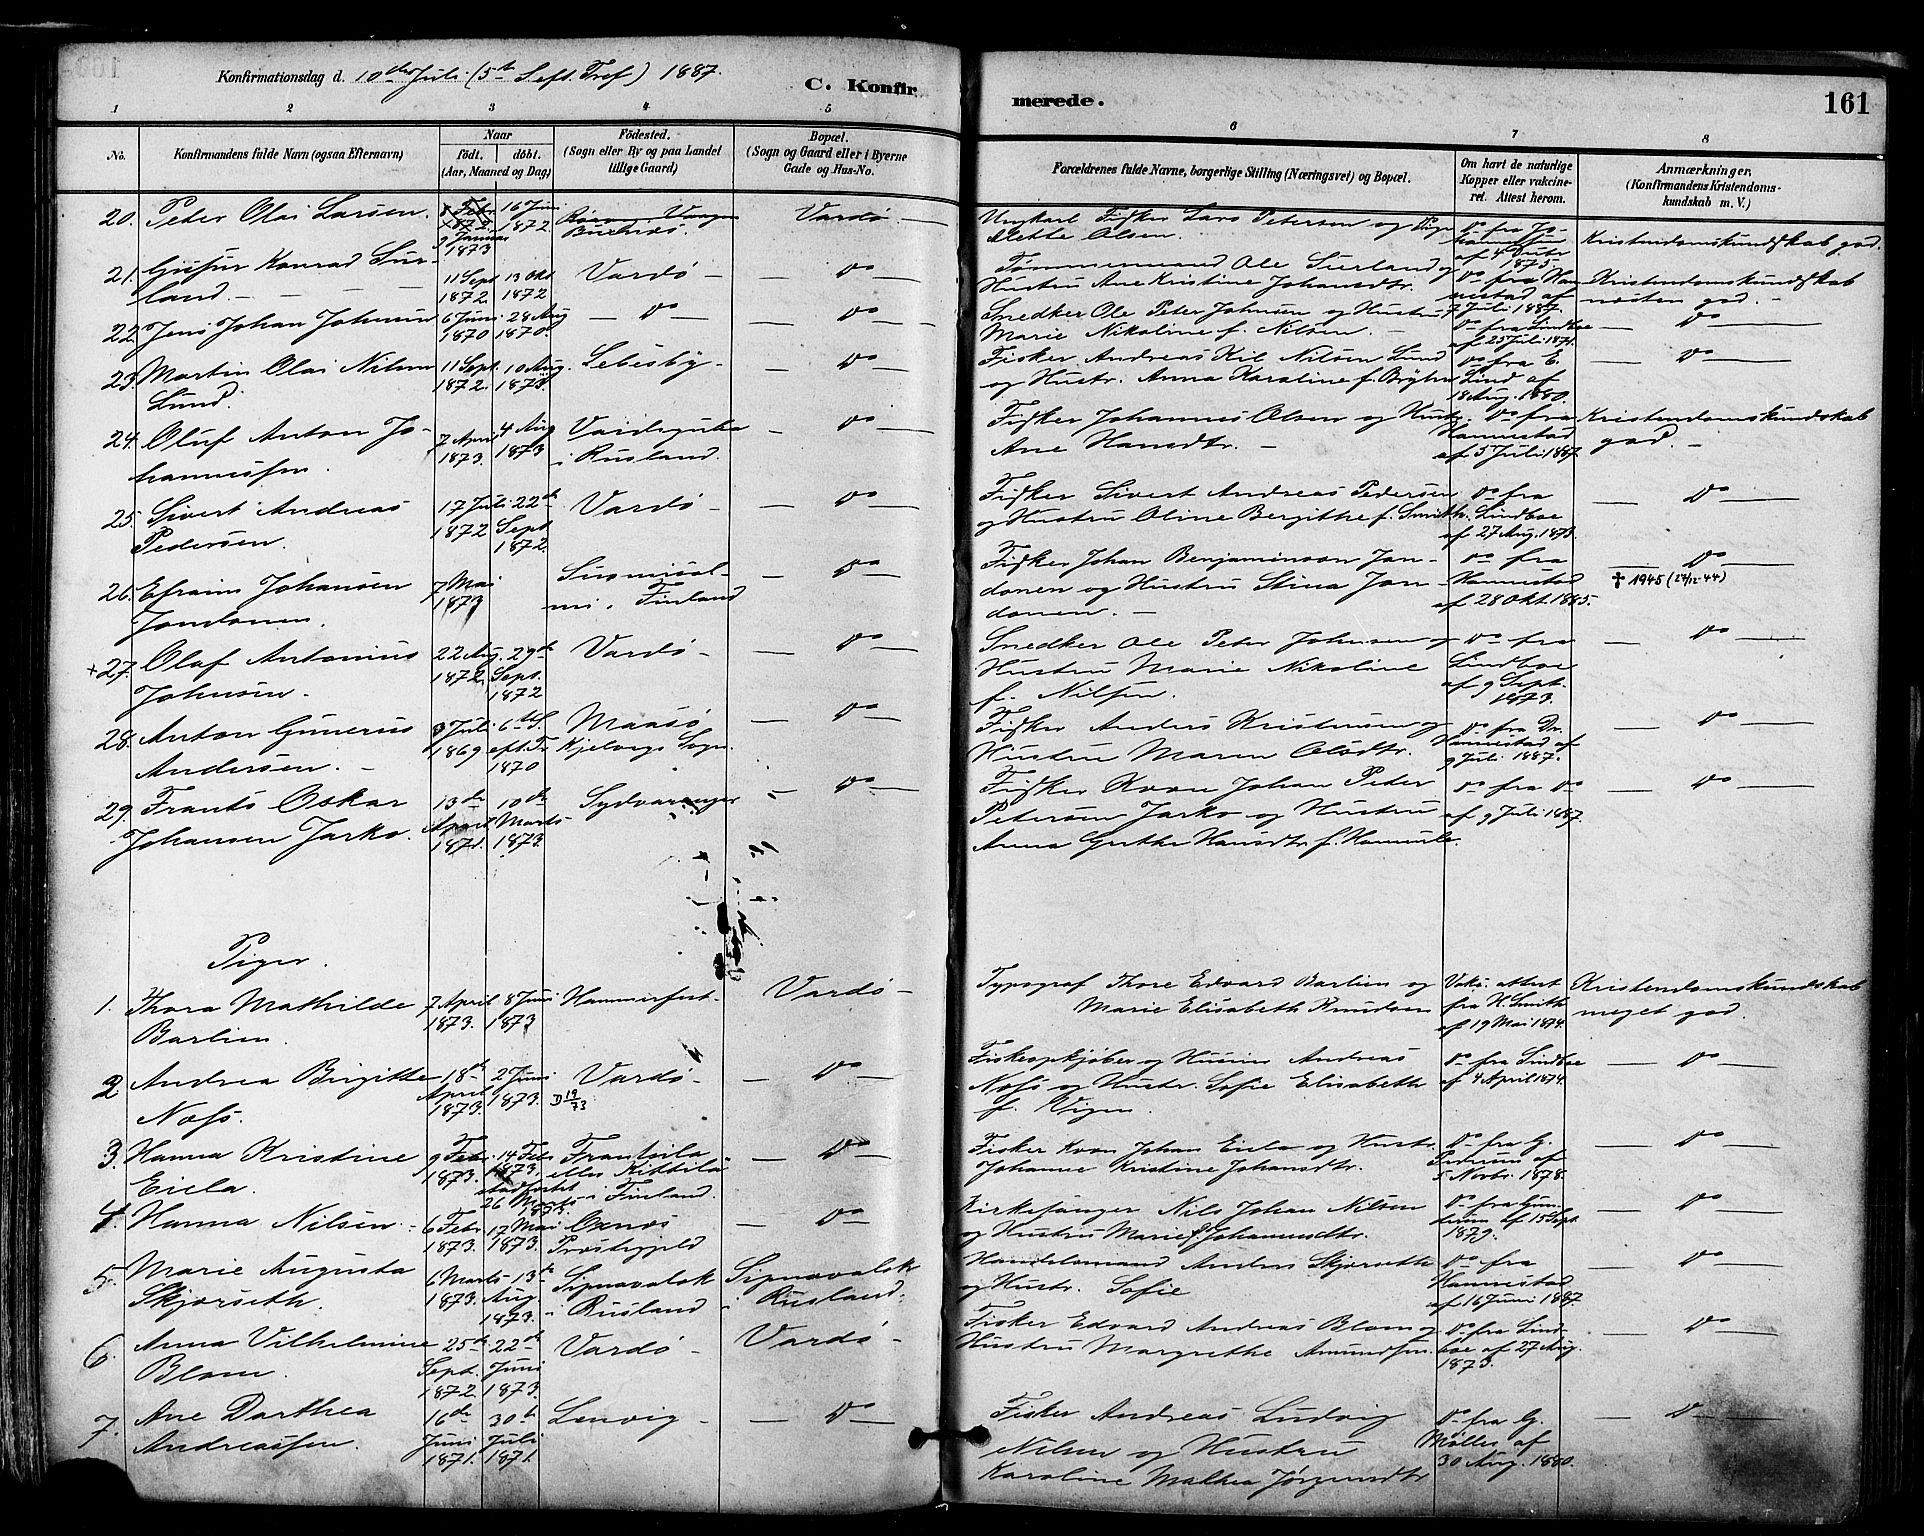 Konfirmationsdag d. 10de Juli (5te S. eft. Tref.) 1887.
C. Konfirmerede.
161
1 2 3 4 5 6 7 8
No.
Konfirmandens fulde Navn (ogsaa Efternavn)
Naar
födt. döbt.
(Aar, Maaned og Dag)
Födested.
(Sogn eller By og paa Landet
tillige Gaard)
Bopæl.
(Sogn og Gaard eller i Byerne
Gade og Hus-No.
Forældrenes fulde Navne, borgerlige Stilling (Næringsvei) og Bopæl.
Om havt de naturlige
Kopper eller vakcine-
ret. Attest herom.
Anmærkninger,
(Konfirmandens Kristendoms-
kundskab m. V.)
20. Peter Olai Larsen. 8 Febr. 1872. 9 Januar 1873 16 Juni 1872 Buxnæs. Vardö
Ungkarl Fisker Lars Petersen og Pige
Mette Olsen.
Do fra Jo-
hannessen
af 4 Octbr
1875.
Kristendomskundskab god.
21. Konrad Sur-
land. 11 Sept 1872. 13 Okt 1872 Vardö Do
Tømmermand Ole Surland og
Hustru Ane Kristine Johansdtr.
Do fra Han-
nestad af
7 Juli 1887.
Kristendomskundskab
næsten god.
22. Jens Johan Johnsen 6 Juni 1870 28 Aug 1870. Do Do
Snedker Ole Peter Johnsen og Hustru
Marie Nikoline f. Nilsen.
Do fra Lindboe
af 25 Juli 1871.
Do
23. Martin Olai Nilsen
Lund. 11 Sept. 1872. 10 Aug. 1873. Lebesby Do
Fisker Andreas Kil Nilsen Lund
og Hustr. Anna Karoline f. Bryhn
Do fra E.
Lind af
18 Aug. 1880.
Do
24. Oluf Anton Jo-
hannessen. 7 April 1873. 4 Aug 1873 Vaidaguba
i Rusland. Do
Fisker Johannes Olsen og Hustr.
Ane Hansdtr.
Do fra
Hannestad
af 5 Juli 1887.
Kristendomskundskab
god.
25. Sivert Andreas
Pedersen. 17 Juli 1872 22de Sept 1872. Vardö Do
Fisker Sivert Andreas Pedersen
og Hustru Oline Bergithe f. Smith.
Do fra
Lindboe
af 27 Aug. 1873.
Do
26. Efraim Johansen
Jondonen. 7 Mai 1873 Suomisal-
mi i Finland Do
Fisker Johan Benjaminson Jon-
donen og Hustru Stina Jon-
donen.
Do fra
Hannestad
af 28 Okt. 1885.
Do
✝ 1945 (24/12-44)
+27. Olaf Antonius
Johnsen. 22 Aug. 1872. 29de Sept. 1872 Vardö Do
Snedker Ole Peter Johnsen og
Hustru Marie Nikoline
f. Nilsen.
Do fra
Lindboe
af 9 Sept.
1873.
Do
28. Anton Gunerius
Andersen. 3 Juli 1869 6te S. eft. Tr. 1870 Maasö
Kjelvigs Sogn. Do
Fisker Anders Kristensen og
Hustru Maren Olsdtr.
Do fra Dr.
Hannestad af
9 Juli 1887.
Do
29. Frants Oskar
Johansen Jarko. 13de April 1871. 10de Marts 1873. Sydvaranger Do
Fisker Kvæn Johan Peter
Petersen Jarko og Hustru
Anna Grethe Hansdtr. f.
Do fra Do
af 9 Juli 1887.
Do
Piger.
1. Thora Mathilde
Barlien. 7 April 1873. 8 Juni 1873 Hammerfest Vardö
Typograf Thore Edvard Barlien og
Marie Elisabeth Knudsen
Vakc. attest
fra K. Smith
af 19 Mai 1874.
Kristendomskundskab
meget god.
2. Andrea Birgitte
Næss. 18de April 1873. 2 Juni 1873. Vardö. D 19/73 Do
Fiskeopkjøber og Husmr Andreas
Næss og Hustr. Sofie Elisabeth
f. Vigen.
Do fra Lindboe
af 4 April 1874.
Do
3. Hanna Kristine
Eiela. 9 Febr. 1873. 14 Febr. 1873. stadfæstet 26 Marts Frantsila
eller Kittila
i Finland. Do
Fisker Kvæn Johan Eiela og Hustr.
Johanne Kristine Johansdtr.
Do fra G.
Pedersen af
5 Novbr. 1878.
Do
4. Hanna Nilsen. 6 Febr. 1873. 17 Mai 1873. Öxnæs
Præstegjeld Do
Kirkesanger Nils Johan Nilsen
og Hustru Marie f. Johannesdtr.
Do fra Gun-
dersen af 15 Sept.
1879.
Do
5. Marie Augusta
Skjærseth. 6 Marts 1873. 13de Aug. 1873. Sipnavalok
i Rusland Sipnavalok
i Rusland.
Handelsmand Anders Skjærseth
og Hustr. Sofie
Do fra
Hannestad
af 16 Juni 1887.
Do
6. Anna Vilhelmine
Blom. 25de Sept. 1872 22de Juni 1873. Vardö Vardö
Fisker Edvard Andreas Blom og
Hustru Margrethe Amundsen.
Do fra Lind-
boe af 27 Aug.
1873.
Do
7. Ane Darthea
Andreassen. 16de Juni 1871. 30te Juli 1871. Lenvig Do
Fisker Andreas Ludvig
Nilsen og Hustru
Karoline Mathea Jørgensdtr
Do fra G.
Møller af
30 Aug. 1880.
Do